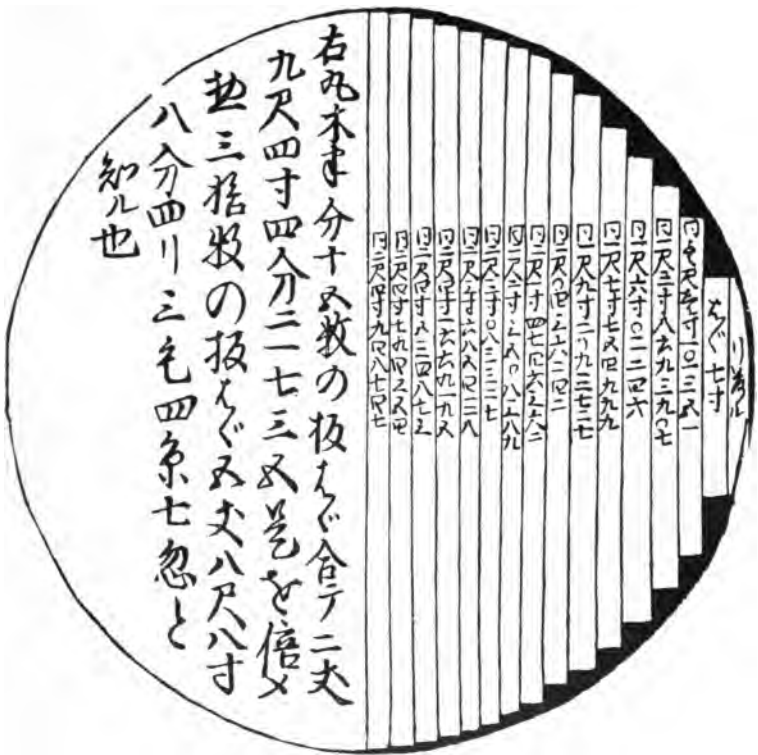 はゞ七寸
同壱尺壱寸一〇一三五一
同一尺三寸八六九三九〇七
同一尺六寸〇一一二四六
同一尺七寸七五四九九九
同一尺九寸二〇九三七二七
同二尺〇四三六二四二
同二尺一寸四七四六三六二
同二尺二寸三五〇八三八九
同二尺三寸〇八三三二七
同二尺三寸六八五四三八
同二尺四寸一六六九一九五
同二尺四寸五三四八七三
同二尺四寸七九四三五四
同二尺四寸九四八七四七
右丸木半分十五枚の板はゞ合テ二丈
九尺四寸四分二一七三五是を倍〆
惣三拾枚の板はゞ五丈八尺八寸
八分四リ三毛四糸七忽と
知ル也